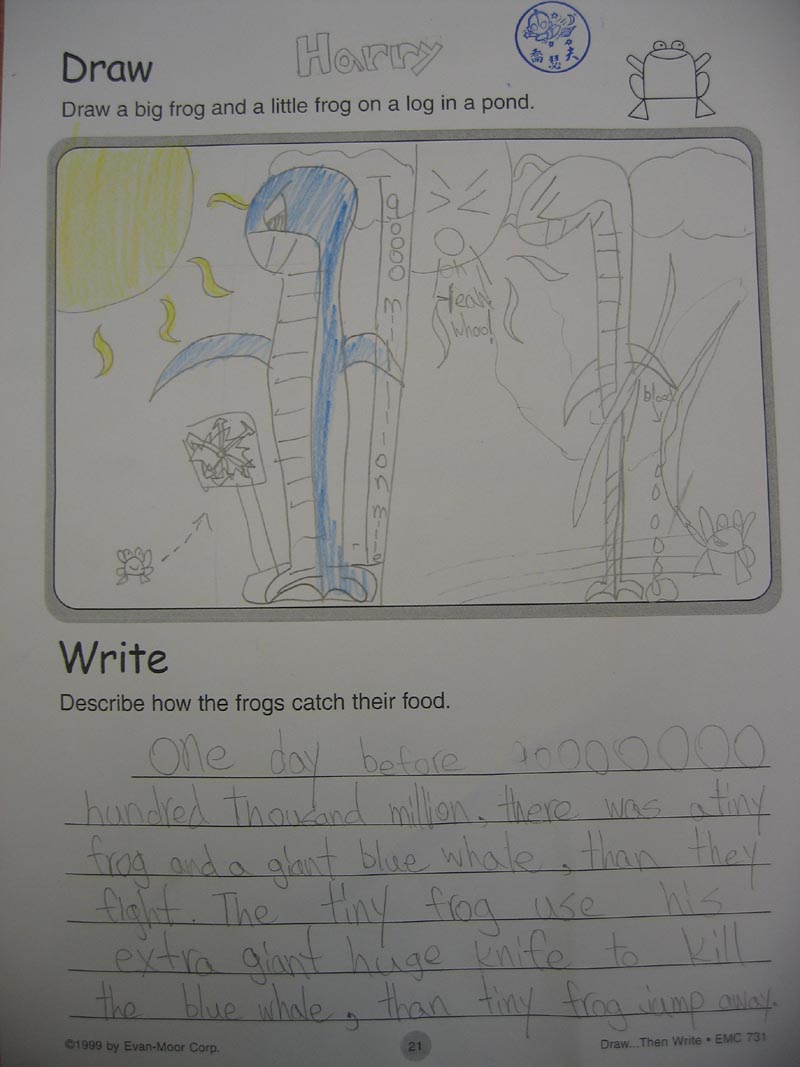 Draw
Harry
喬瑟夫
Draw a big frog and a little frog on a log in a pond.
90000 million mile
oh
Yeah
whoo!
blood
Write
Describe how the frogs catch their food.
One day before
hundred thousand million, there was a tiny
frog and a giant blue whale, than they
fight. The tiny frog use his
extra giant huge knife to kill
the blue whale, than tiny frog jump away.
©1999 by Evan-Moor Corp.
21
Draw...Then Write • EMC 731